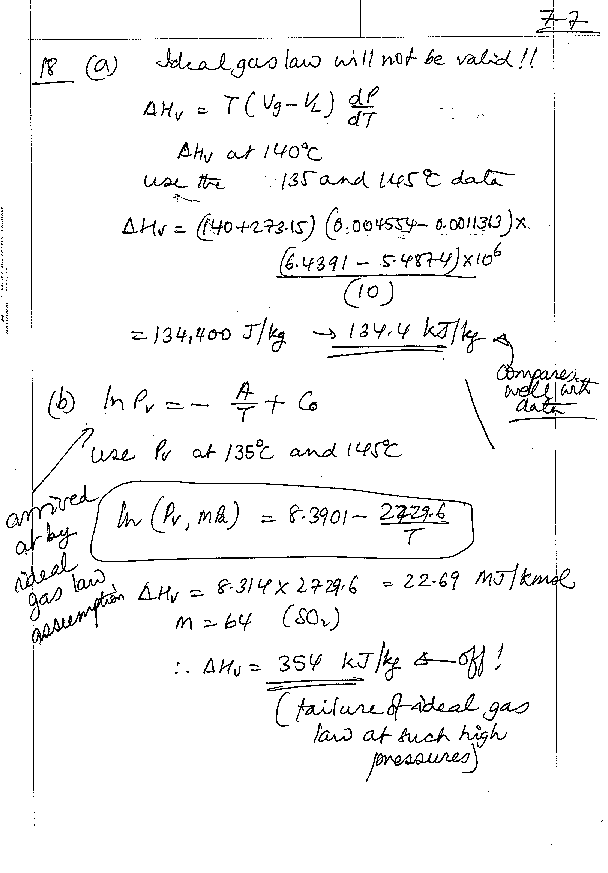 7-7
18 (a) Ideal gas law will not be valid!!
ΔHv = T(Vg-VL) dP/dT
ΔHv at 140°C
use the 135 and 145°C data
ΔHv = (140+273.15) (0.004554 - 0.0011313) ×
(6.4391 - 5.4874)×10^6 / (10)
= 134,400 J/kg → 134.4 kJ/kg
Compares
well with
data
(b) ln Pv = - A/T + C0
use Pv at 135°C and 145°C
arrived
at by
ideal
gas law
assumption
ln (Pv, MPa) = 8.3901 - 2729.6/T
ΔHv = 8.314 × 2729.6 = 22.69 MJ/kmol
M = 64 (SO2)
∴ ΔHv = 354 kJ/kg ← off!
(failure of ideal gas
law at such high
pressures)